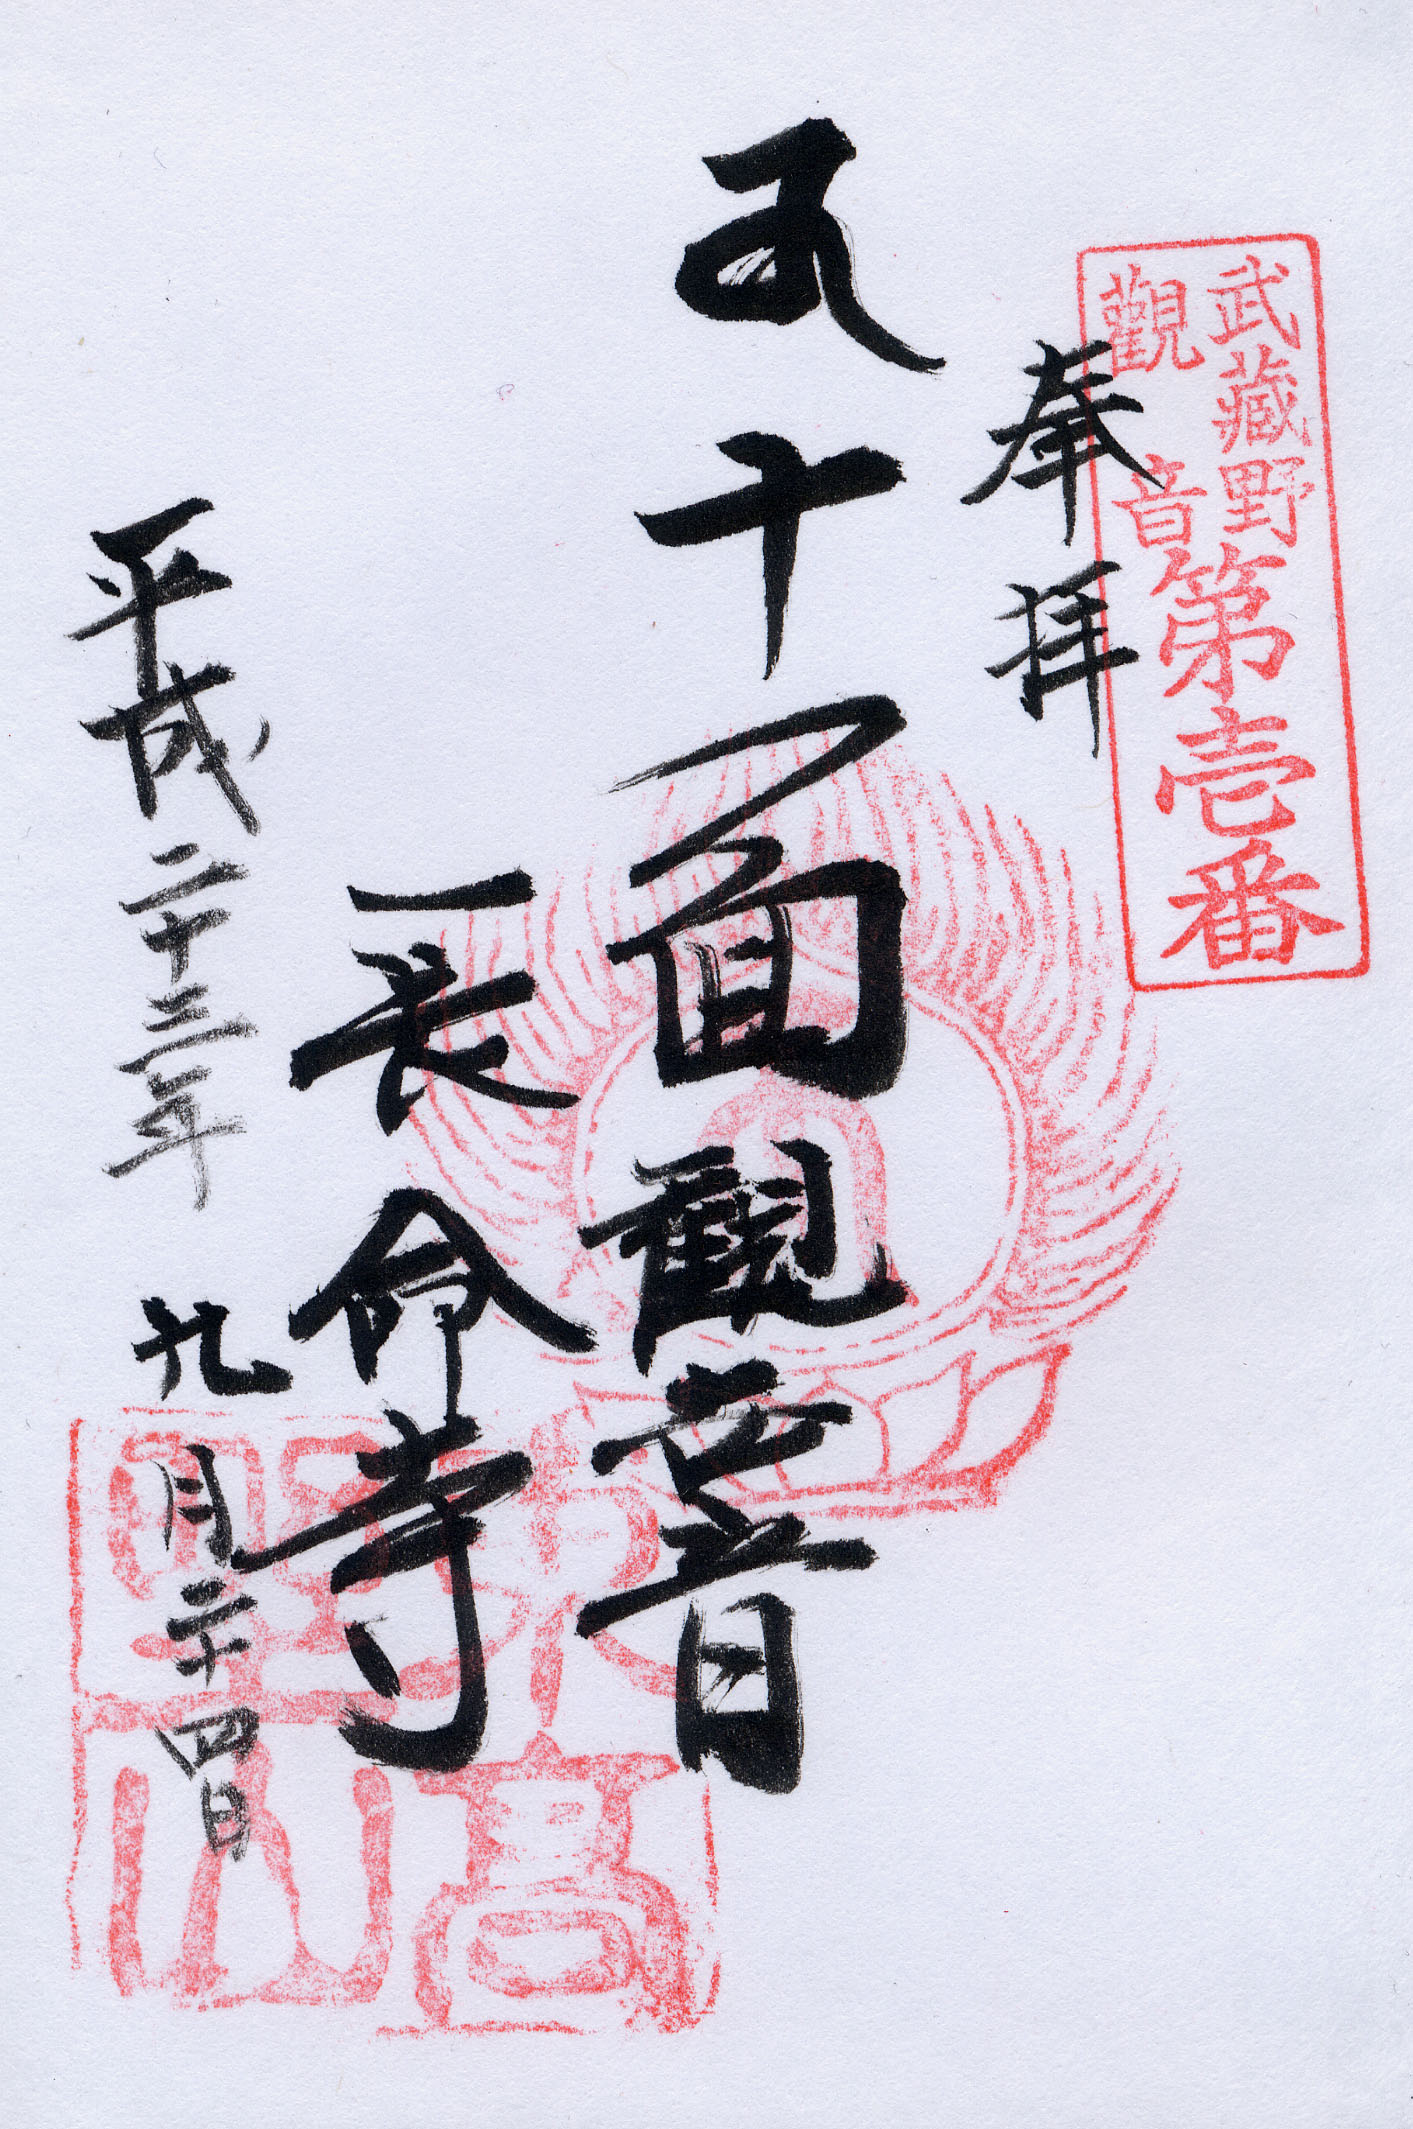 武藏野
觀音
第壱番
奉拝
十一面観世音
長命寺
平成二十三年 九月二十四日
東高
野山